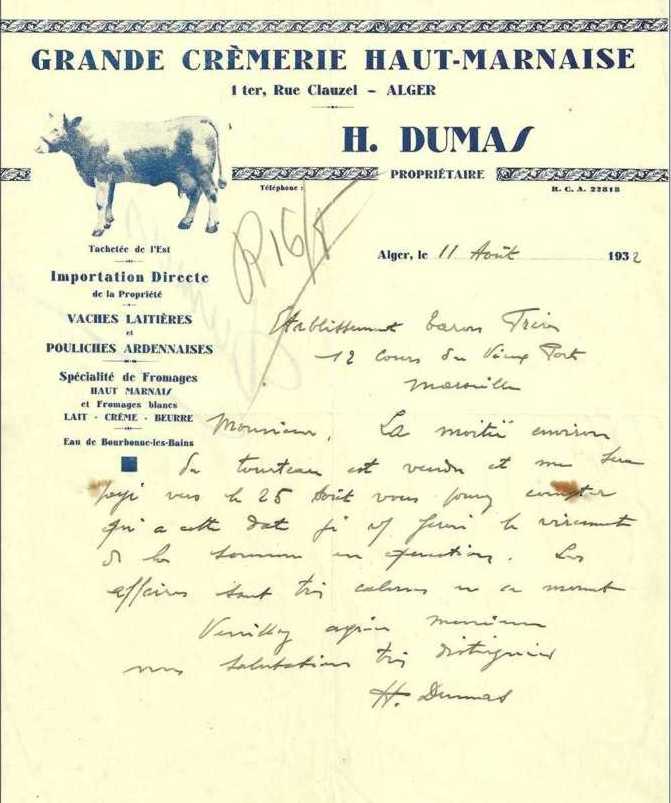 GRANDE CRÈMERIE HAUT-MARNAISE
1 ter, Rue Clauzel - ALGER
H. DUMAS
PROPRIÉTAIRE
Téléphone :
R. C. A. 22818
Tachetée de l'Est
Importation Directe
de la Propriété
VACHES LAITIÈRES
et
POULICHES ARDENNAISES
Spécialité de Fromages
HAUT MARNAIS
et Fromages blancs
LAIT - CRÈME - BEURRE
Eau de Bourbonne-les-Bains
R 16/8
Alger, le 11 Août 1932
Etablissement Frères
12 Cours du Vieux Port
Marseille
Monsieur, La moitié environ
du tourteau est vendu et me sera
payé vers le 25 Août vous pouvez compter
qu'a cette date je ferai le virement
de la somme en question. Les
affaires sont très calmes en ce moment
Veuillez agréer monsieur
mes salutations très distinguées
H. Dumas